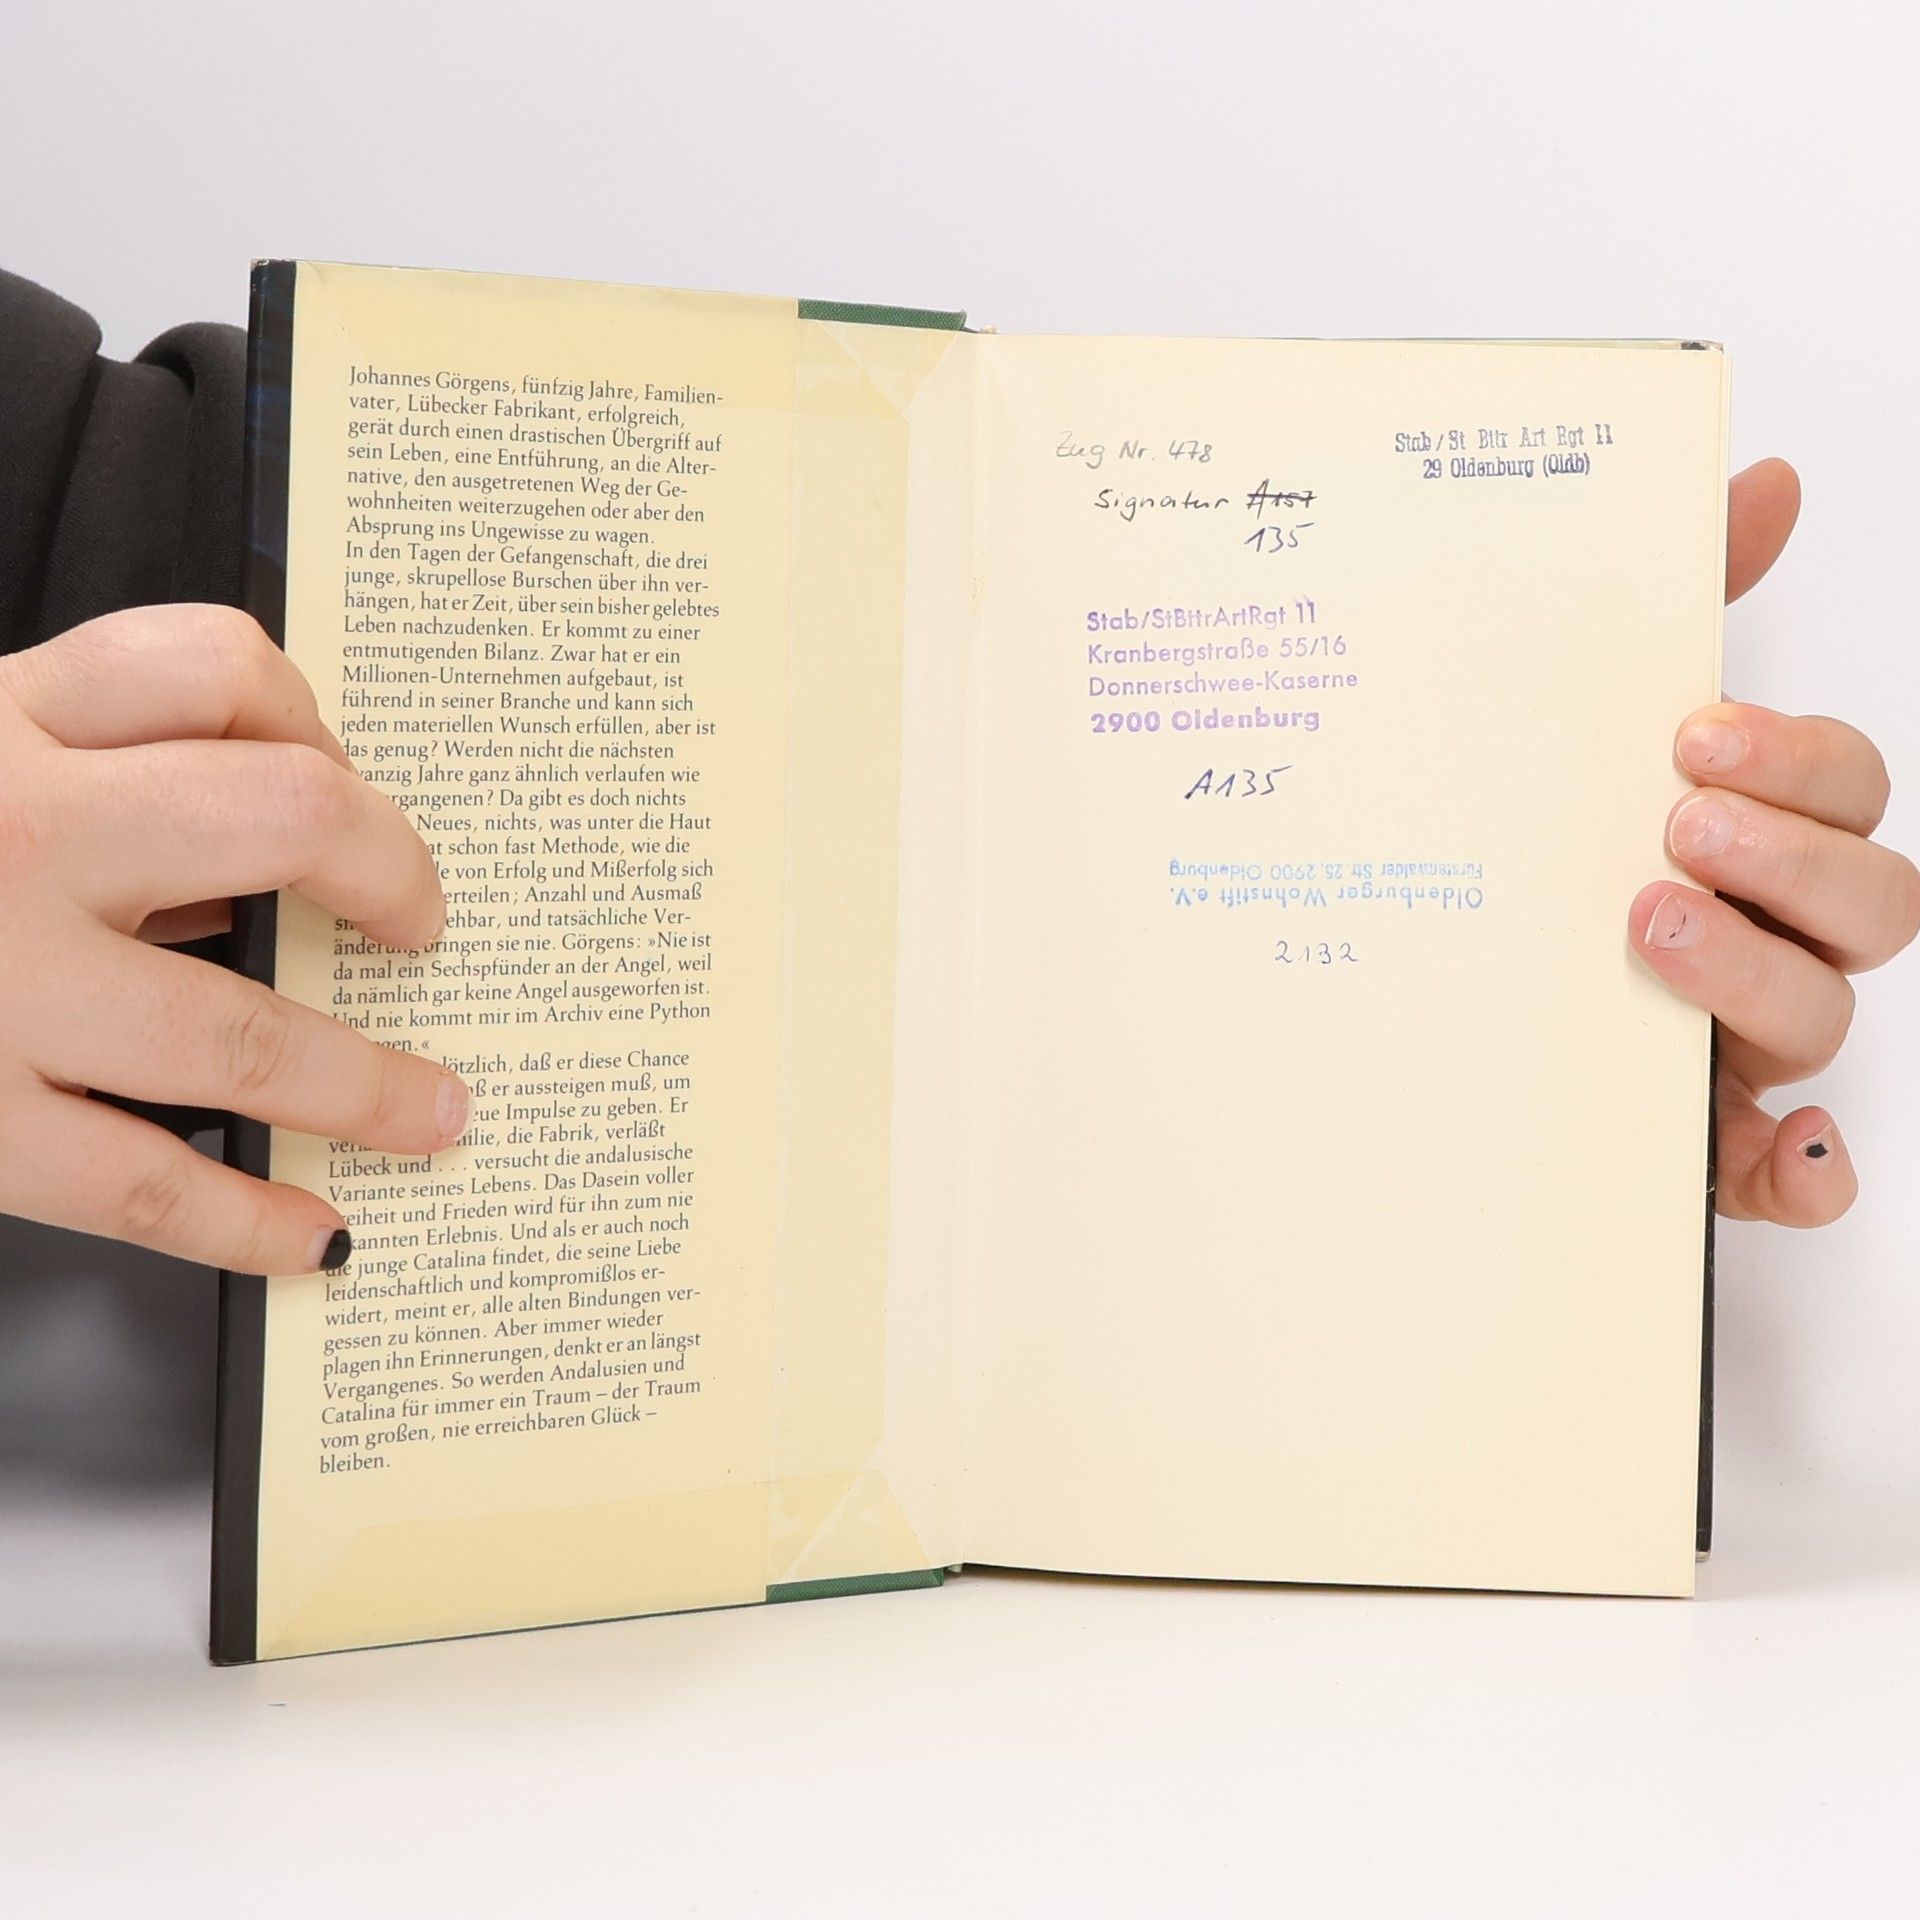 Johannes Görgens, fünfzig Jahre, Familien-
vater, Lübecker Fabrikant, erfolgreich,
gerät durch einen drastischen Übergriff auf
sein Leben, eine Entführung, an die Alter-
native, den ausgetretenen Weg der Ge-
wohnheiten weiterzugehen oder aber den
Absprung ins Ungewisse zu wagen.
In den Tagen der Gefangenschaft, die drei
junge, skrupellose Burschen über ihn ver-
hängen, hat er Zeit, über sein bisher gelebtes
Leben nachzudenken. Er kommt zu einer
entmutigenden Bilanz. Zwar hat er ein
Millionen-Unternehmen aufgebaut, ist
führend in seiner Branche und kann sich
jeden materiellen Wunsch erfüllen, aber ist
das genug? Werden nicht die nächsten
Jahre ganz ähnlich verlaufen wie
Da gibt es doch nichts
Neues, nichts, was unter die Haut
schon fast Methode, wie die
von Erfolg und Mißerfolg sich
Anzahl und Ausmaß
und tatsächliche Ver-
änderung bringen sie nie. Görgens: »Nie ist
da mal ein Sechspfünder an der Angel, weil
da nämlich gar keine Angel ausgeworfen ist.
Und nie kommt mir im Archiv eine Python
daß er diese Chance
er aussteigen muß, um
Impulse zu geben. Er
die Fabrik, verläßt
Lübeck und . . . versucht die andalusische
Variante seines Lebens. Das Dasein voller
Freiheit und Frieden wird für ihn zum nie
gekannten Erlebnis. Und als er auch noch
die junge Catalina findet, die seine Liebe
leidenschaftlich und kompromißlos er-
widert, meint er, alle alten Bindungen ver-
gessen zu können. Aber immer wieder
plagen ihn Erinnerungen, denkt er an längst
Vergangenes. So werden Andalusien und
Catalina für immer ein Traum – der Traum
vom großen, nie erreichbaren Glück –
bleiben.
Zug Nr. 478
Signatur A157
135
Stab/St Bttr Art Rgt 11
29 Oldenburg (Oldb)
Stab/StBttrArtRgt 11
Kranbergstraße 55/16
Donnerschwee-Kaserne
2900 Oldenburg
A135
Oldenburger Wohnstift e.V.
Fürstenwalder Str. 25, 2900 Oldenburg
2132